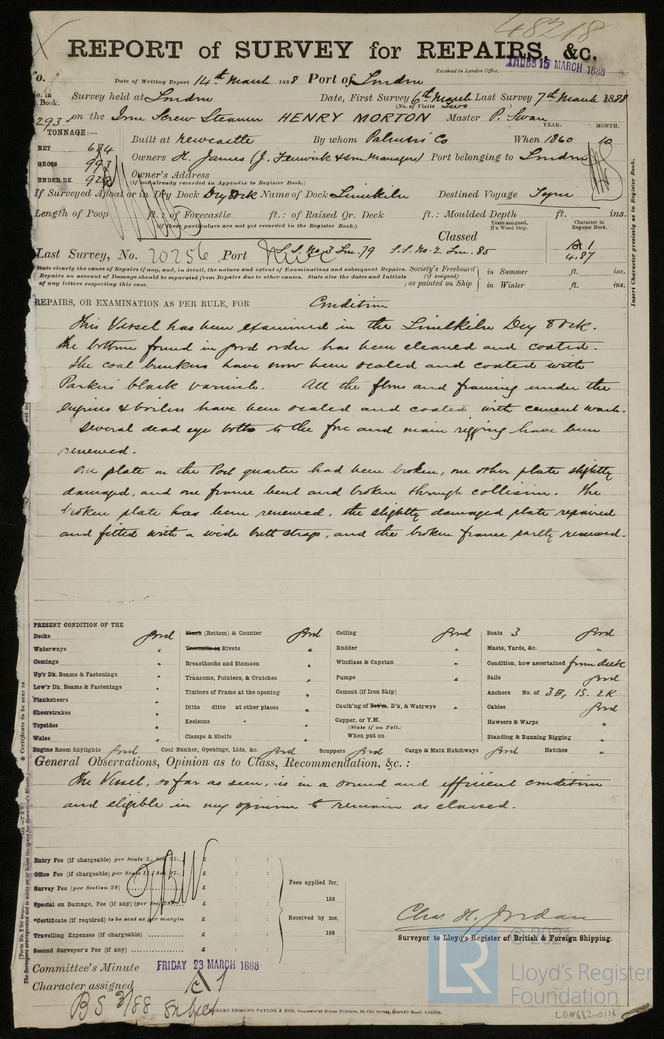 48218
REPORT of SURVEY for REPAIRS, &c.
Date of Writing Report 14th March 1888 Port of London
Received in London Office, THURS 15 MARCH 1888
No. in Book. Survey held at London Date, First Survey 6th March Last Survey 7th March 1888
(No. of Visits Two)
293 on the Iron Screw Steamer HENRY MORTON Master P. Swan
TONNAGE:—
NET 684
GROSS 993
UNDER DK 929
Built at Newcastle By whom Palmers Co When 1860 10
YEAR. MONTH.
Owners H. James (J. Fenwick & Son Managers) Port belonging to London
Owner's Address
(if not already recorded in Appendix to Register Book.)
If Surveyed Afloat or in Dry Dock Dry Dock Name of Dock Limekiln Destined Voyage Tyne
Length of Poop ft.: of Forecastle ft.: of Raised Qr. Deck ft.: Moulded Depth ft. ins.
(if these particulars are not yet recorded in the Register Book.)
Classed
Character in Register Book.
Last Survey, No. 20256 Port S.S. No 3 Lon. 79 S.S. No. 2 Lon. 85
4.87
State clearly the causes of Repairs if any, and, in detail, the nature and extent of Examinations and subsequent Repairs.
Repairs on account of Damage should be separated from Repairs due to other causes. State also the dates and Initials
of any letters respecting this case.
Society's Freeboard (if assigned) as painted on Ship in Summer ft. ins.
in Winter ft. ins.
Insert Character precisely as in Register Book.
REPAIRS, OR EXAMINATION AS PER RULE, FOR Condition
This Vessel has been examined in the Limekiln Dry Dock.
The bottom found in good order has been cleaned and coated.
The coal bunkers have now been scaled and coated with
Parkers black varnish. All the floors and framing under the
engines & boilers have been scaled and coated with cement wash.
Several dead eye bolts to the fore and main rigging have been
renewed.
One plate on the Port quarter had been broken, one other plate slightly
damaged, and one frame bent and broken through collision. The
broken plate has been renewed, the slightly damaged plate repaired
and fitted with a wide butt strap, and the broken frame partly renewed.
PRESENT CONDITION OF THE
Decks Good
Waterways "
Comings "
Up'r Dk. Beams & Fastenings "
Low'r Dk. Beams & Fastenings "
Planksheers "
Sheerstrakes "
Topsides "
Wales "
Plank (Bottom) & Counter Good
Treenails or Rivets "
Breasthooks and Stemson "
Transoms, Pointers, & Crutches "
Timbers of Frame at the opening "
Ditto ditto at other places "
Keelsons "
Clamps & Shelfs "
Ceiling Good
Rudder "
Windlass & Capstan "
Pumps "
Cement (if Iron Ship) "
Caulk'ng of Bot'm, D'k, & Watrwys "
Copper, or Y.M.
(State if on Felt.)
When put on
Boats 3 Good
Masts, Yards, &c. "
Condition, how ascertained from deck
Sails Good
Anchors No. of 3B, 1S. 2K
Cables Good
Hawsers & Warps "
Standing & Running Rigging "
Engine Room Skylights Good Coal Bunker, Openings, Lids, &c. Good Scuppers Good Cargo & Main Hatchways Good Hatches "
General Observations, Opinion as to Class, Recommendation, &c.:
The Vessel, so far as seen, is in a sound and efficient condition
and eligible in my opinion to remain as classed.
Entry Fee (if chargeable) per Scale I., Sec. 27... £ : :
Office Fee (if chargeable) per Scale II., Sec. 27... £ : :
Survey Fee (per Section 28) £ : :
Special on Damage, Fee (if any) (per Sec. 28) £ : :
*Certificate (if required) to be sent as per margin £ : :
Travelling Expenses (if chargeable) £ : :
Second Surveyor's Fee (if any) £ : :
Fees applied for,
188
Received by me,
188
Chas. H. Jordan
Surveyor to Lloyd's Register of British & Foreign Shipping.
Committee's Minute FRIDAY 23 MARCH 1888
Character assigned
BS 3/88
© 2021
LR
Lloyd's Register
Foundation
LDNGS2-0116